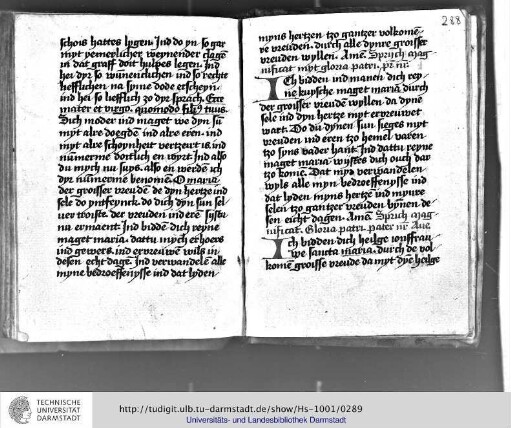 schois hattes lygen. Ind do yn so gar
myt yemerlicher weynender clage
in dat graff doit hulpes legen. Ind
hei dyr so wunencklichen ind so rechte
liefflichen na syme dode erscheyn.
ind hei so liefflich zo dyr sprach. Ecce
mater et virgo. quomodo filius tuus.
Dich moder ind maget we dyn su
myt alre doegden ind alre eren. ind
myt alre schoynheit vertzeurt is. ind
nummerme doitlich en wyrt. Ind also
du mych nu suys. also en werde ich
dyr nummerme benomen. O maria
der groisser vreuden de dyn hertze ind
sele do yntfeynck. do dich dyn sun sel
ver troiste. der vreuden ind ere
na ermaent. Ind bidden dich reyne
maget maria. dattu mych erhoers
ind gewers. ind ervreuwen wils in
desen echt dage. Ind verwandele alle
myne bedroeffenysse ind dat lyden
288
myns hertzen tzo gantzer volkome
re vreuden. durch alle dynre groisser
vreuden wyllen. Amen. Sprich mag
nificat myt gloria patri. pr nr
Ich bidden ind manen dich rey
ne kuysche maget maria durch
der groisser vreuden wyllen da dyne
sele ind dyn hertze myt ervreuwet
wart. Do du dynen sun sieges myt
vreuden ind eren tzo hemel varen
tzo syns vader hant. Ind dattu reyne
maget maria wystes dich ouch dar
tzo kome. Dat myr verwandelen
wyls alle myn bedroeffenysse ind
dat lyden myns hertze ind mynre
selen tzo gantzer vreuden bynnen de
sen eicht dagen. Amen. Sprich mag
nificat. Gloria patri. pater nr Aue
Ich bidden dich heilge iouffrau
we sancta maria. durch de vol
komen groisse vreude da myt dyne heilge
TECHNISCHE
UNIVERSITÄT
DARMSTADT
http://tudigit.ulb.tu-darmstadt.de/show/Hs-1001/0289
Universitäts- und Landesbibliothek Darmstadt